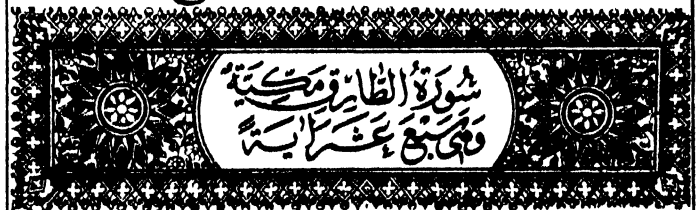 سُورَةُ الطَّارِقِ مَكِّيَّةٌ
وَهِيَ سَبْعَ عَشَرَ اٰيَةً